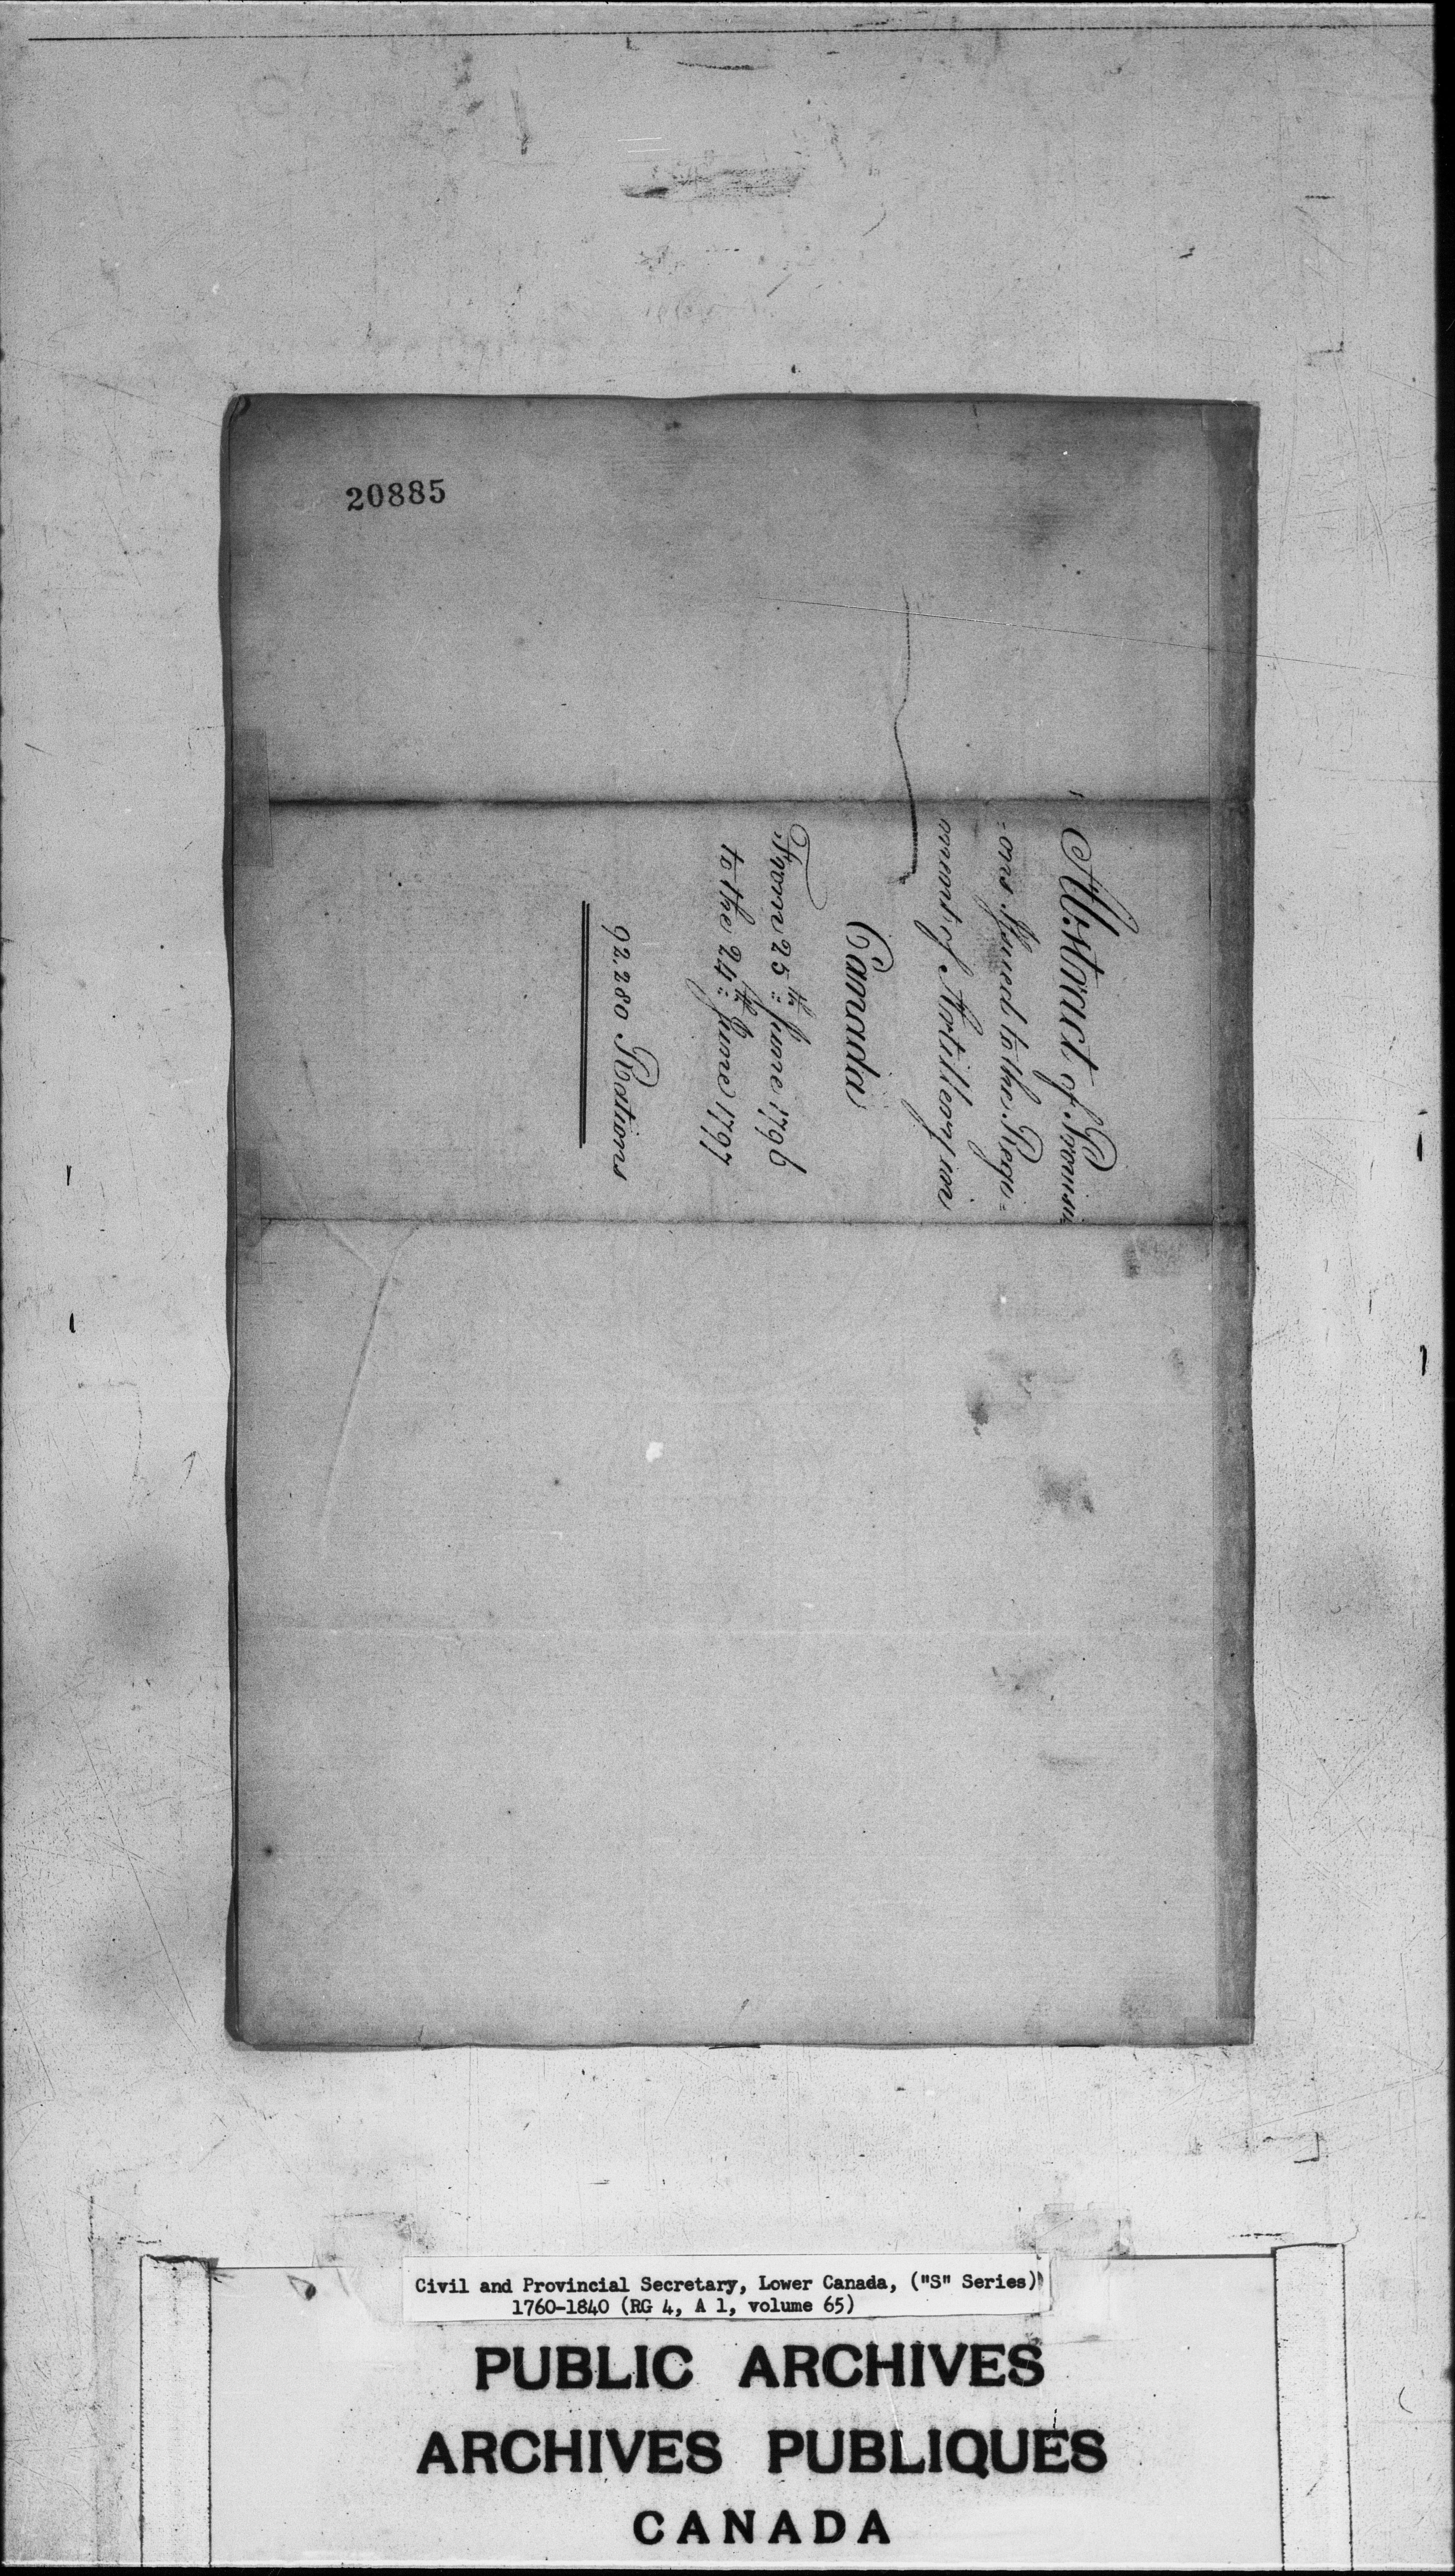 20885
Abstract of Provisi
=ons Issued to the Regi=
=ment of Artillery in
Canada
From 25th June 1796
to the 24th June 1797
92.280 Rations
Civil and Provincial Secretary, Lower Canada, ("S" Series)
1760-1840 (RG 4, A 1, volume 65)
PUBLIC ARCHIVES
ARCHIVES PUBLIQUES
CANADA